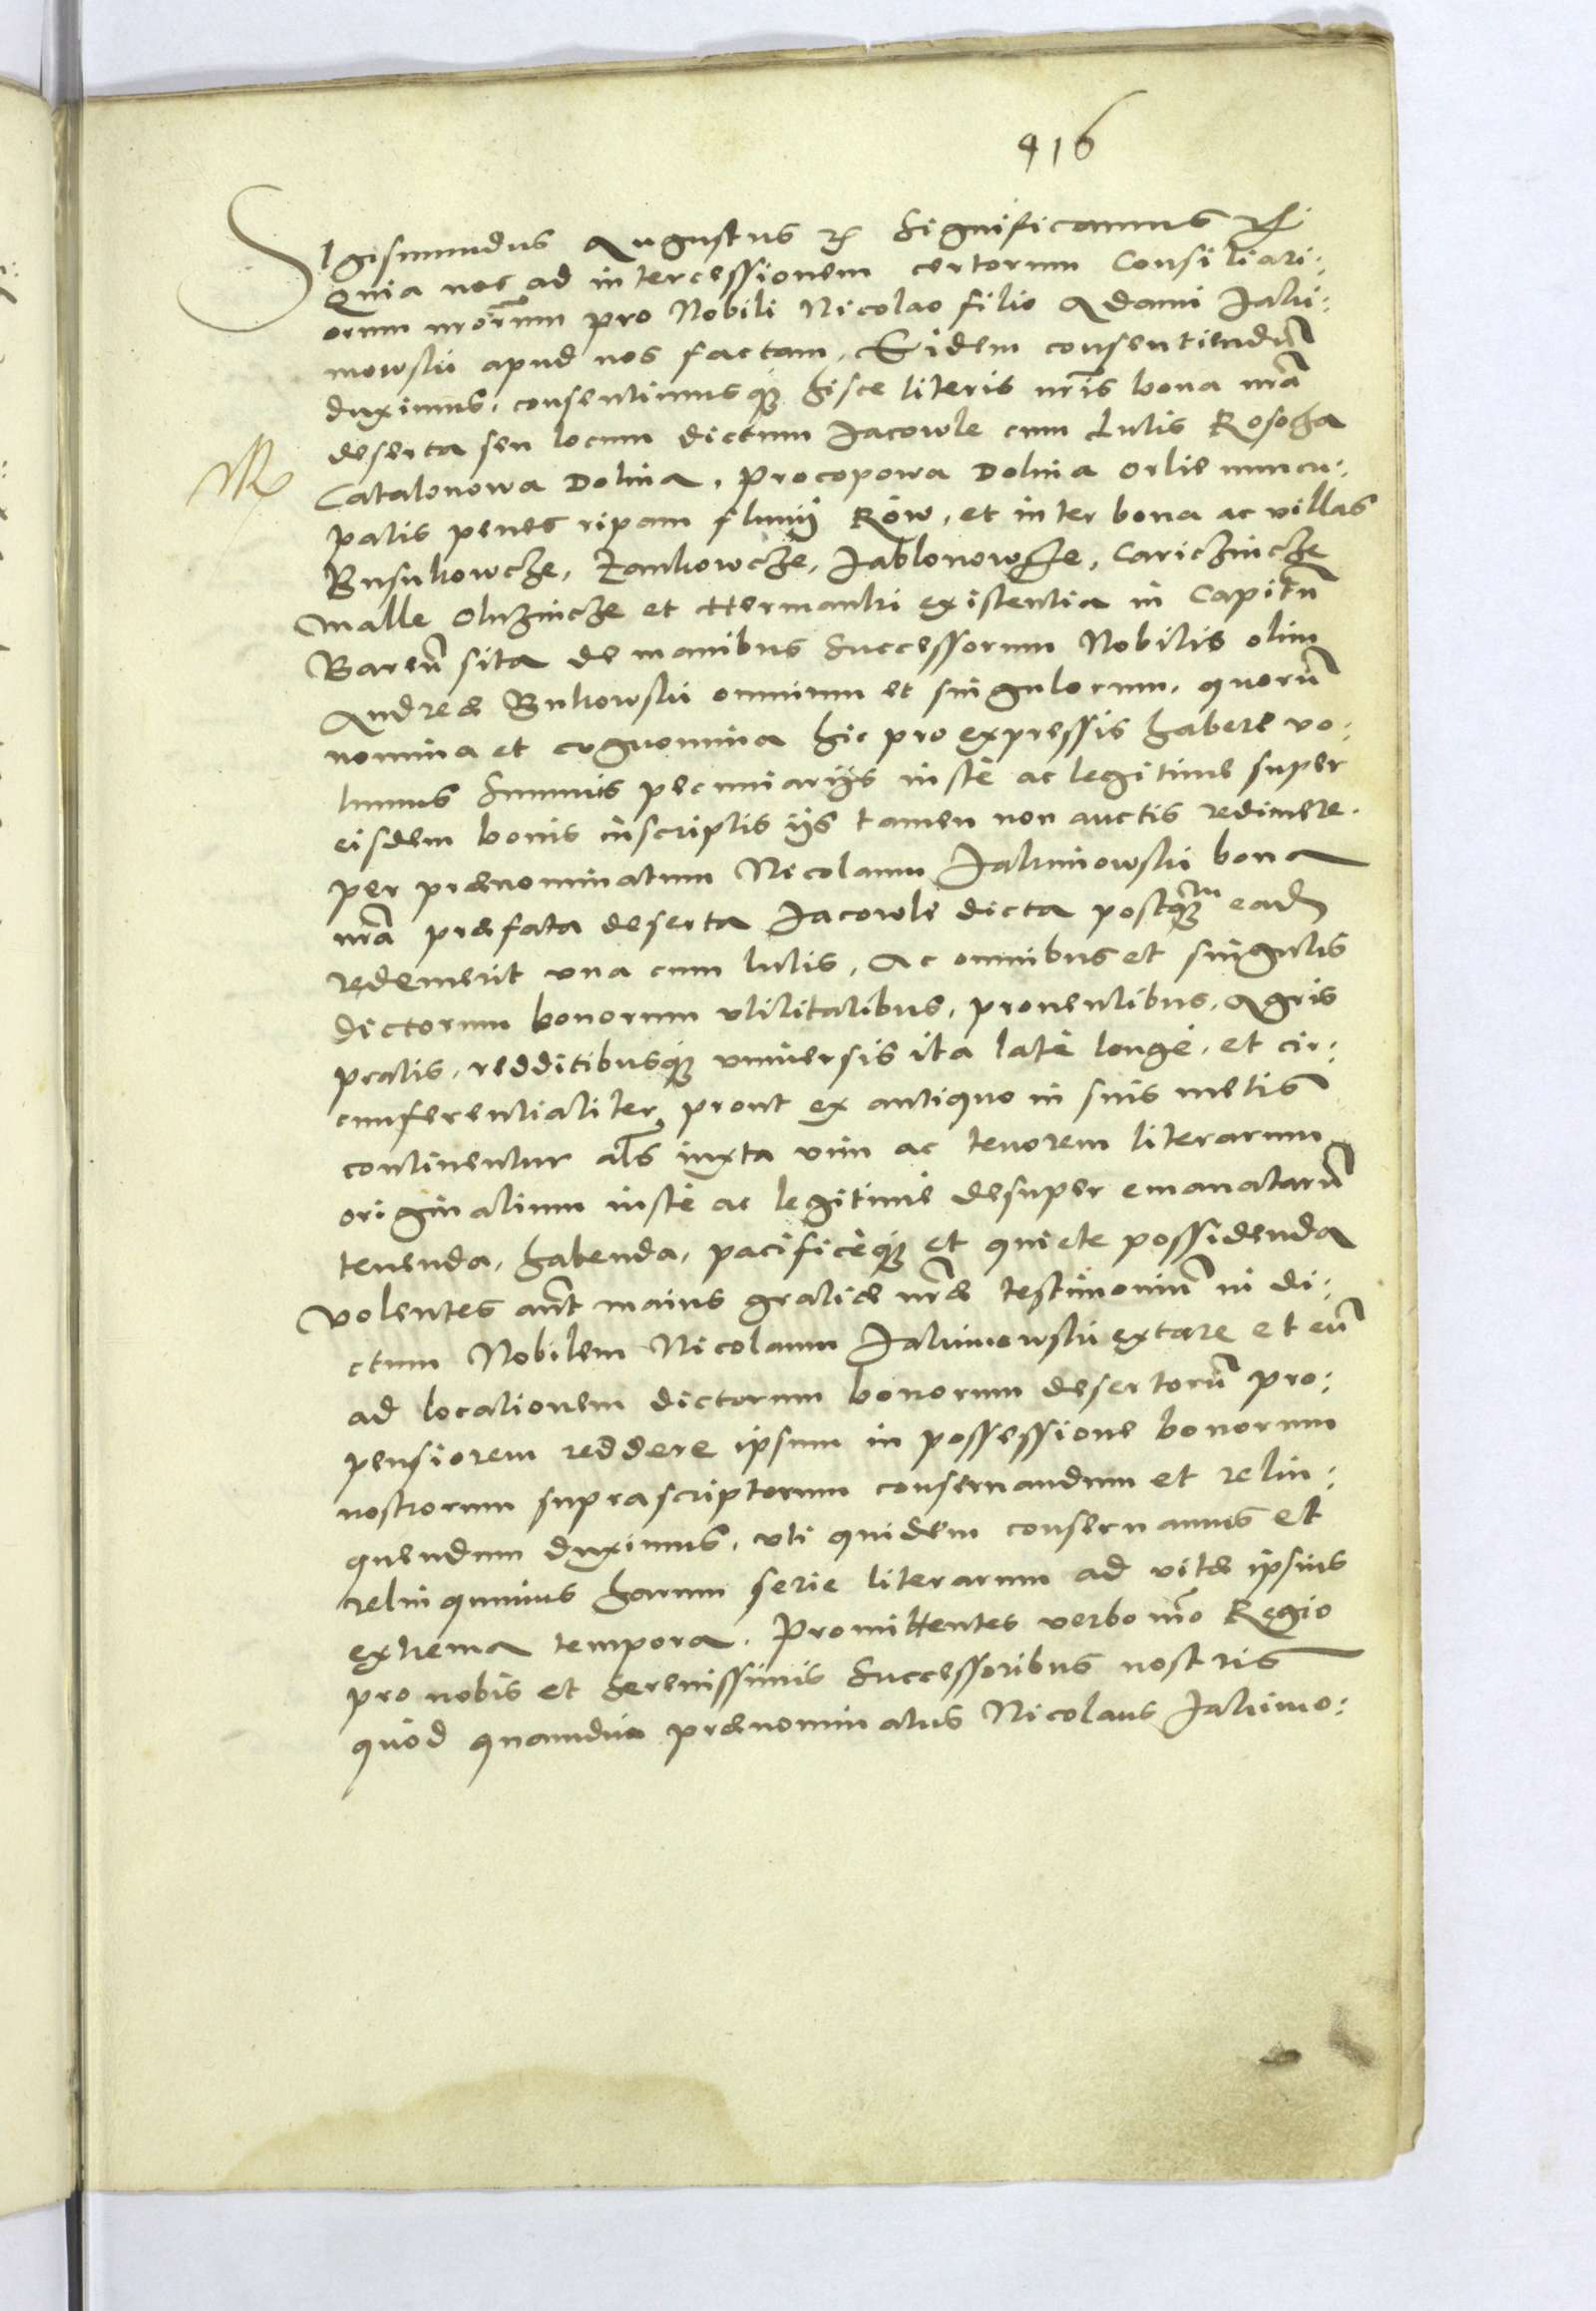 416
Sigismundus Augustus etc. Significamus etc.
Quia nos ad intercessionem certorum Consiliari:
orum nrorum pro Nobili Nicolao filio Adami Jalti:
mowski apud nos factam, Eidem consentiendū
duximus, consentimusq; hisce literis nris bona nrā
deserta seu locum dictum Jacowle cum Lutis Rosocha
Catalonowa Dolina, Procopowa Dolina Orlie nuncu:
patis penes ripam fluvij Row, et inter bona ac villas
Busukowcze, Zankowcze, Jablonowcze, Cariczincze
Malle Oluzincze et Hermanki existentia in Capitū
Bareū sita de manibus Successorum Nobilis olim
Andreæ Bukowski omnium et singulorum, quorū
nomina et cognomina hic pro expressis habere vo:
lumus Summis pecuniarijs iustè ac legitime super
eisdem bonis inscriptis ijs tamen non auctis redimere.
per prænominatum Nicolaum Jaltimowski bona
nrā præfata deserta Jacowle dicta postqm ead
redemerit una cum lutis, Ac omnibus et singulis
dictorum bonorum utilitatibus, proventibus, Agris
pratis, redditibusq; universis ita latè longè, et cir:
cumferentialiter, prout ex antiquo in suis metis
continentur als iuxta vim ac tenorem literarum
originalium iustè ac legitimè desuper emanatarū
tenenda, habenda, pacificèq; et quiete possidenda
Volentes aūt maius gratiæ nræ testimoniū in di:
ctum Nobilem Nicolaum Jaltimowski extare et eū
ad locationem dictorum bonorum desertorū pro:
pensiorem reddere ipsum in possessione bonorum
nostrorum suprascriptorum conservandum et relin:
quendum duximus, uti quidem conservamus et
relinquimus harum serie literarum ad vitæ ipsius
extrema tempora. Promittentes verbo nro Regio
pro nobis et Serenissimis Successoribus nostris
quòd quamdiu prænominatus Nicolaus Jaltimo: